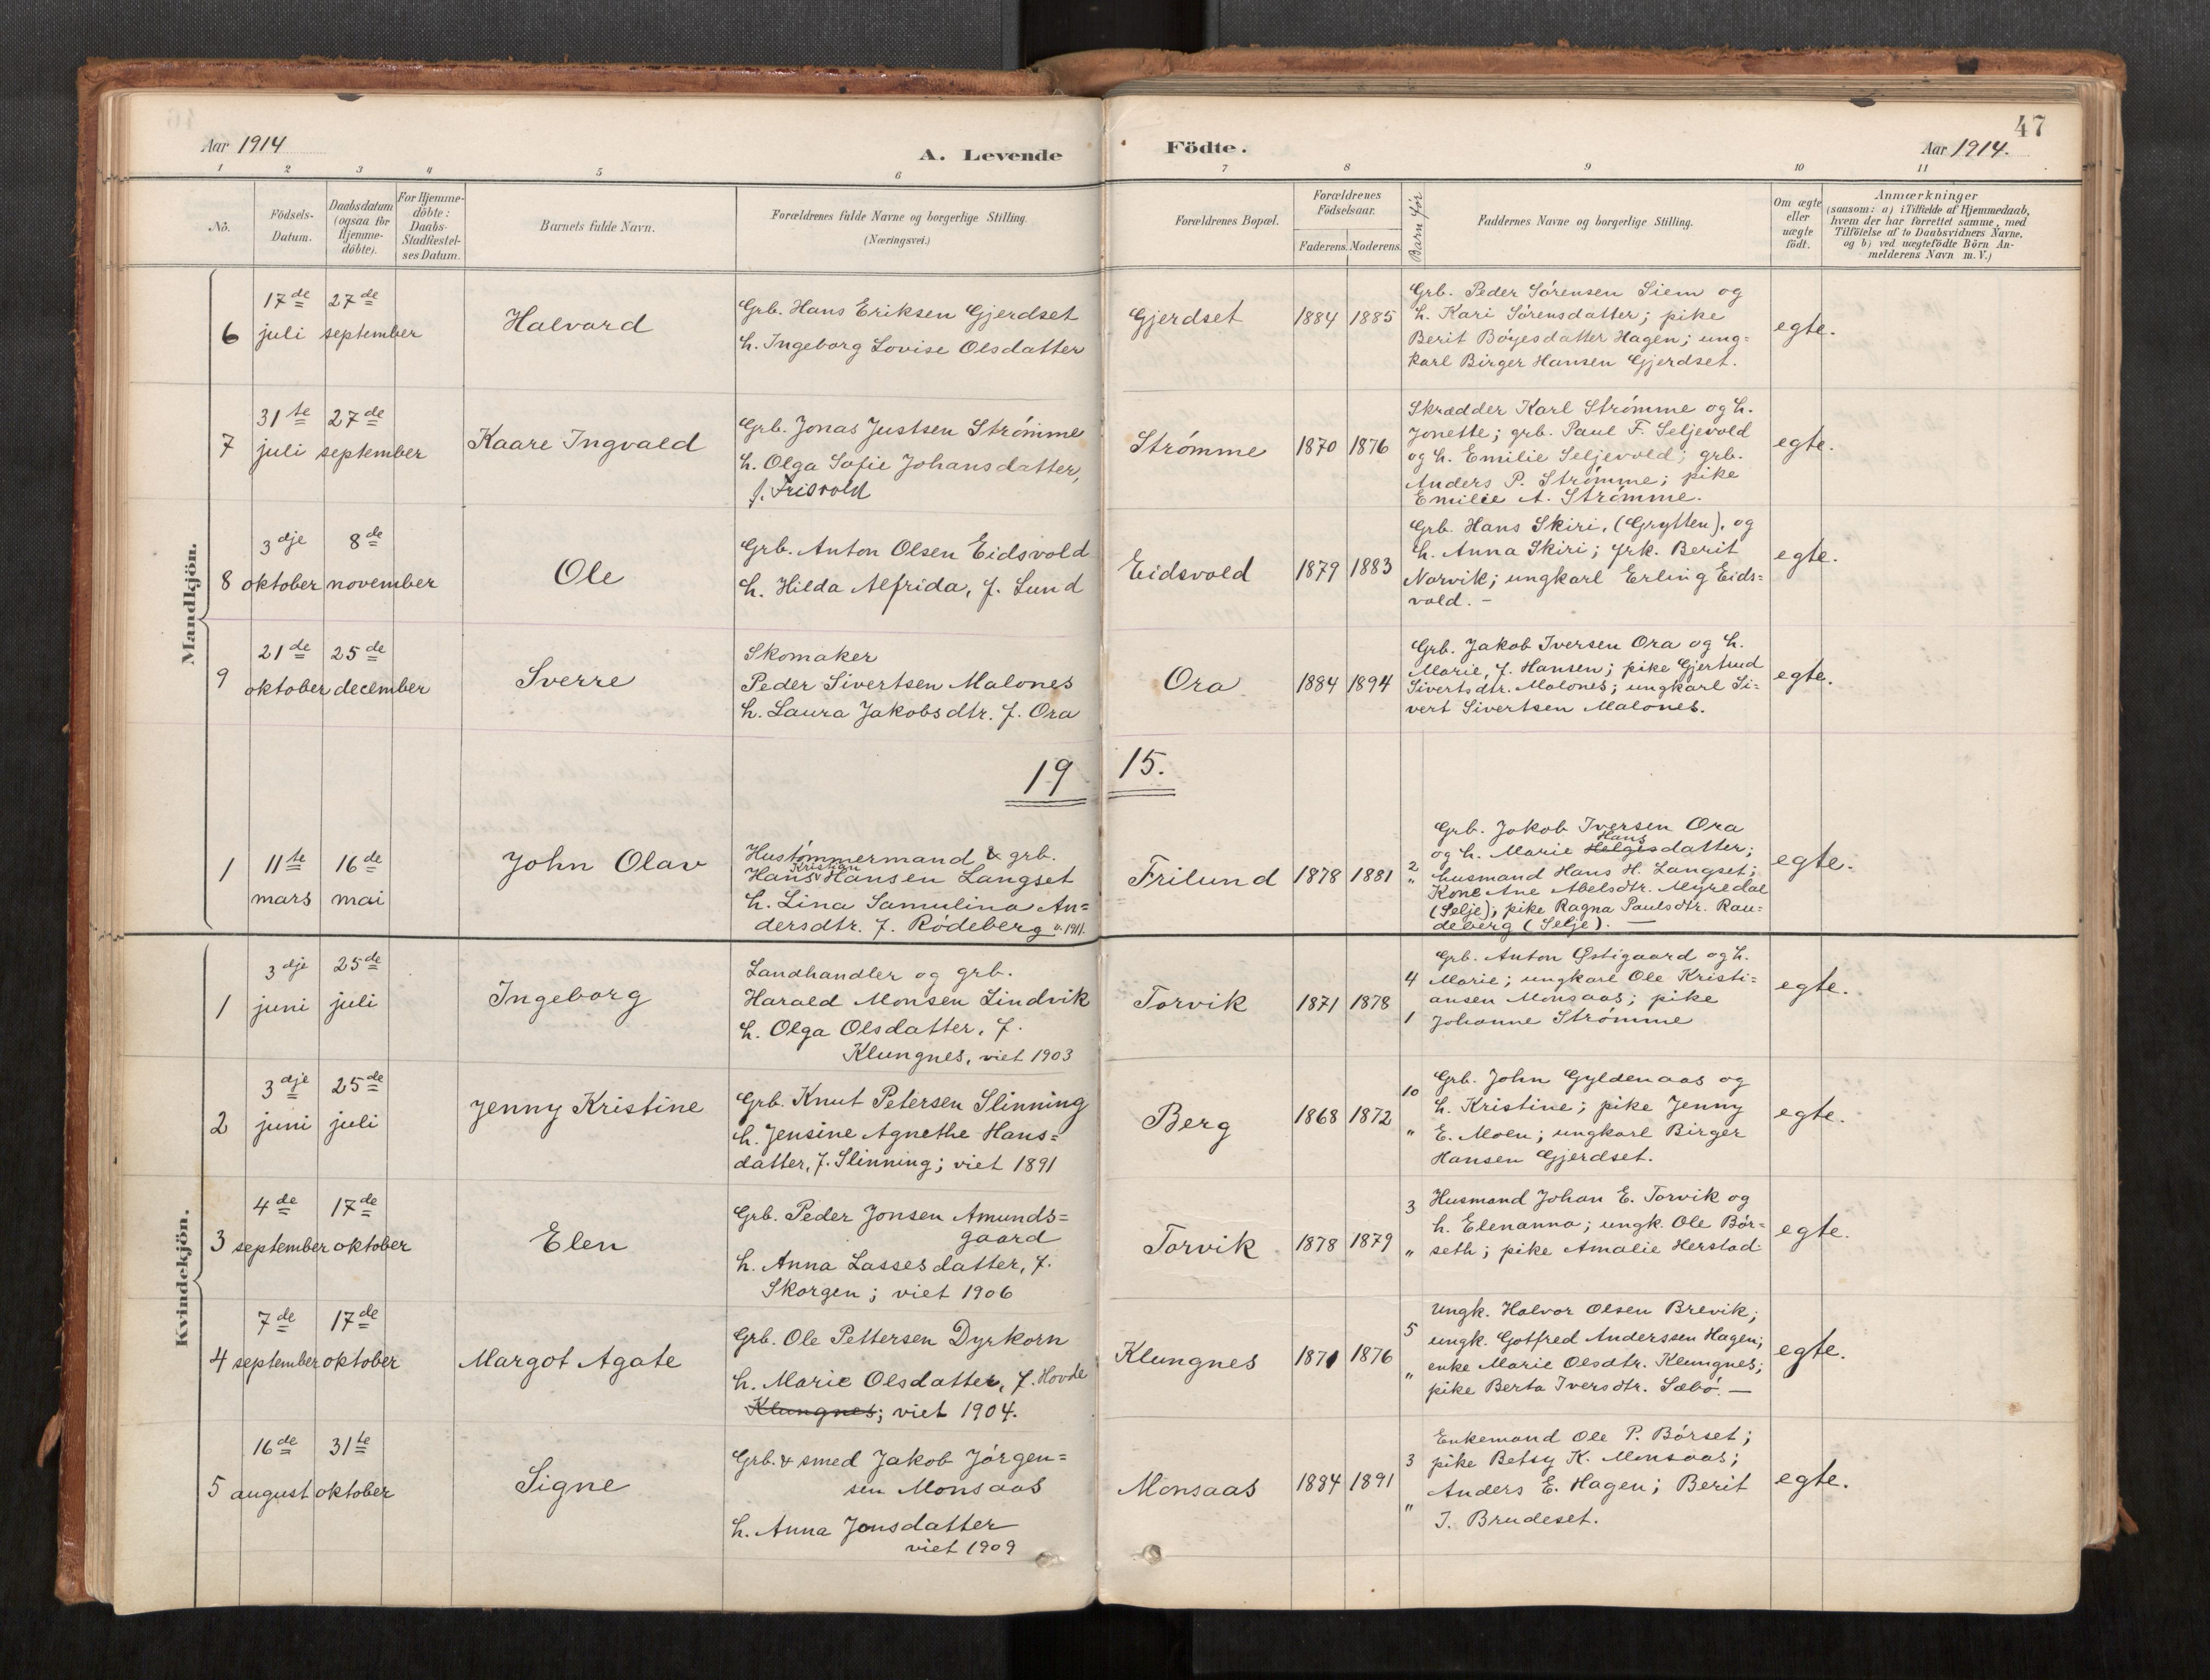 47
Aar 1914
A. Levende
Födte.
Aar 1914.
1 2 3 4 5 6 7 8 9 10 11
No.
Födsels-
Datum.
Daabsdatum
(ogsaa for
Hjemme-
döbte).
For Hjemme-
döbte:
Daabs-
Stadfæstel-
ses Datum.
Barnets fulde Navn.
Forældrenes fulde Navne og borgerlige Stilling.
(Næringsvei.)
Forældrenes Bopæl.
Forældrenes
Födselsaar.
Faderens. Moderens.
Barn før
Faddernes Navne og borgerlige Stilling.
Om ægte
eller
uægte
födt.
Anmærkninger
(saasom: a) i Tilfælde af Hjemmedaab,
hvem der har forrettet samme, med
Tilföielse af to Daabsvidners Navne.
og b) ved uægtefödte Börn An-
melderens Navn m. V.)
Mandkjön.
6
17de juli
27de september
Halvard
Grb. Hans Eriksen Gjerdset
h. Ingeborg Lovise Olsdatter
Gjerdset
1884 1885
Grb. Peder Sörensen Siem og
h. Kari Sörensdatter; pike
Berit Böyesdatter Hagen; ung=
karl Birger Hansen Gjerdset.
egte.
7
31te juli
27de september
Kaare Ingvald
Grb. Jonas Justsen Strömme
h. Olga Sofie Johansdatter,
f. Frisvold
Strömme
1870 1876
Skrædder Karl Strömme og h.
Jonette; grb. Paul F. Seljevold
og h. Emilie Seljevold; grb.
Anders P. Strömme; pike
Emilie A. Strömme.
egte.
8
3dje oktober
8de november
Ole
Grb. Anton Olsen Eidsvold
h. Hilda Alfrida, f. Lund
Eidsvold
1879 1883
Grb. Hans Skiri, (Grytten), og
h. Anna Skiri; frk. Berit
Norvik; ungkarl Erling Eids=
vold. -
egte.
9
21de oktober
25de december
Sverre
Skomaker
Peder Sivertsen Malones
h. Laura Jakobsdtr. f. Ora
Ora
1884 1894
Grb. Jakob Iversen Ora og h.
Marie, f. Hansen; pike Gjertrud
Sivertsdtr. Malones; ungkarl Si=
vert Sivertsen Malones.
egte.
19 15.
1
11te mars
16de mai
John Olav
Hustömmermand & grb.
Kristian
Hans Hansen Langset
h. Lina Samulina An=
dersdtr. f. Rödeberg v. 1911.
Frilund
1878 1881
2
"
Grb. Jakob Iversen Ora
Hans
og h. Marie Helgisdatter;
husmand Hans H. Langset;
Kone Ane Abelsdtr. Myredal
(Selje); pike Ragna Paulsdtr. Rau=
deberg (Selje). —
egte.
Kvindekjön.
1
3dje juni
25de juli
Ingeborg
Landhandler og grb.
Harald Monsen Lindvik
h. Olga Olsdatter, f.
Klungnes, viet 1903
Torvik
1871 1878
4
1
Grb. Anton Østigaard og h.
Marie; ungkarl Ole Kristi=
ansen Monsaas; pike
Johanne Strömme
egte.
2
3dje juni
25de juli
Jenny Kristine
Grb. Knut Petersen Slinning
h. Jensine Agnethe Hans=
datter, f. Slinning; viet 1891
Berg
1868 1872
10
"
Grb. John Gyldenaas og
h. Kristine; pike Jenny
E. Moen; ungkarl Birger
Hansen Gjerdset.
egte.
3
4de september
17de oktober
Elen
Grb. Peder Jonsen Amunds=
gaard
h. Anna Lassesdatter, f.
Skorgen; viet 1906
Torvik
1878 1879
3
"
Husmand Johan E. Torvik og
h. Elenanna; ungk. Ole Bör=
seth; pike Amalie Herstad
egte.
4
7de september
17de oktober
Margot Agate
Grb. Ole Pettersen Dyrkorn
h. Marie Olsdatter, f. Hovde
Klungnes; viet 1904.
Klungnes
1871 1876
5
"
Ungk. Halvor Olsen Brevik;
ungk. Gotfred Anderssen Hagen;
enke Marie Olsdtr. Klungnes;
pike Berta Iversdtr. Sæbö. —
egte.
5
16de august
31te oktober
Signe
Grb. & smed Jakob Jörgen=
sen Monsaas
h. Anna Jonsdatter
viet 1909
Monsaas
1884 1891
3
"
Enkemand Ole P. Börset;
pike Betsy K. Monsaas;
Anders E. Hagen; Berit
J. Brudeset.
egte.